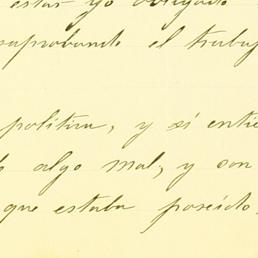 estar yo obligado
aprobando el trabaj
politica, y si entie
algo mal, y con
que estaba poseido